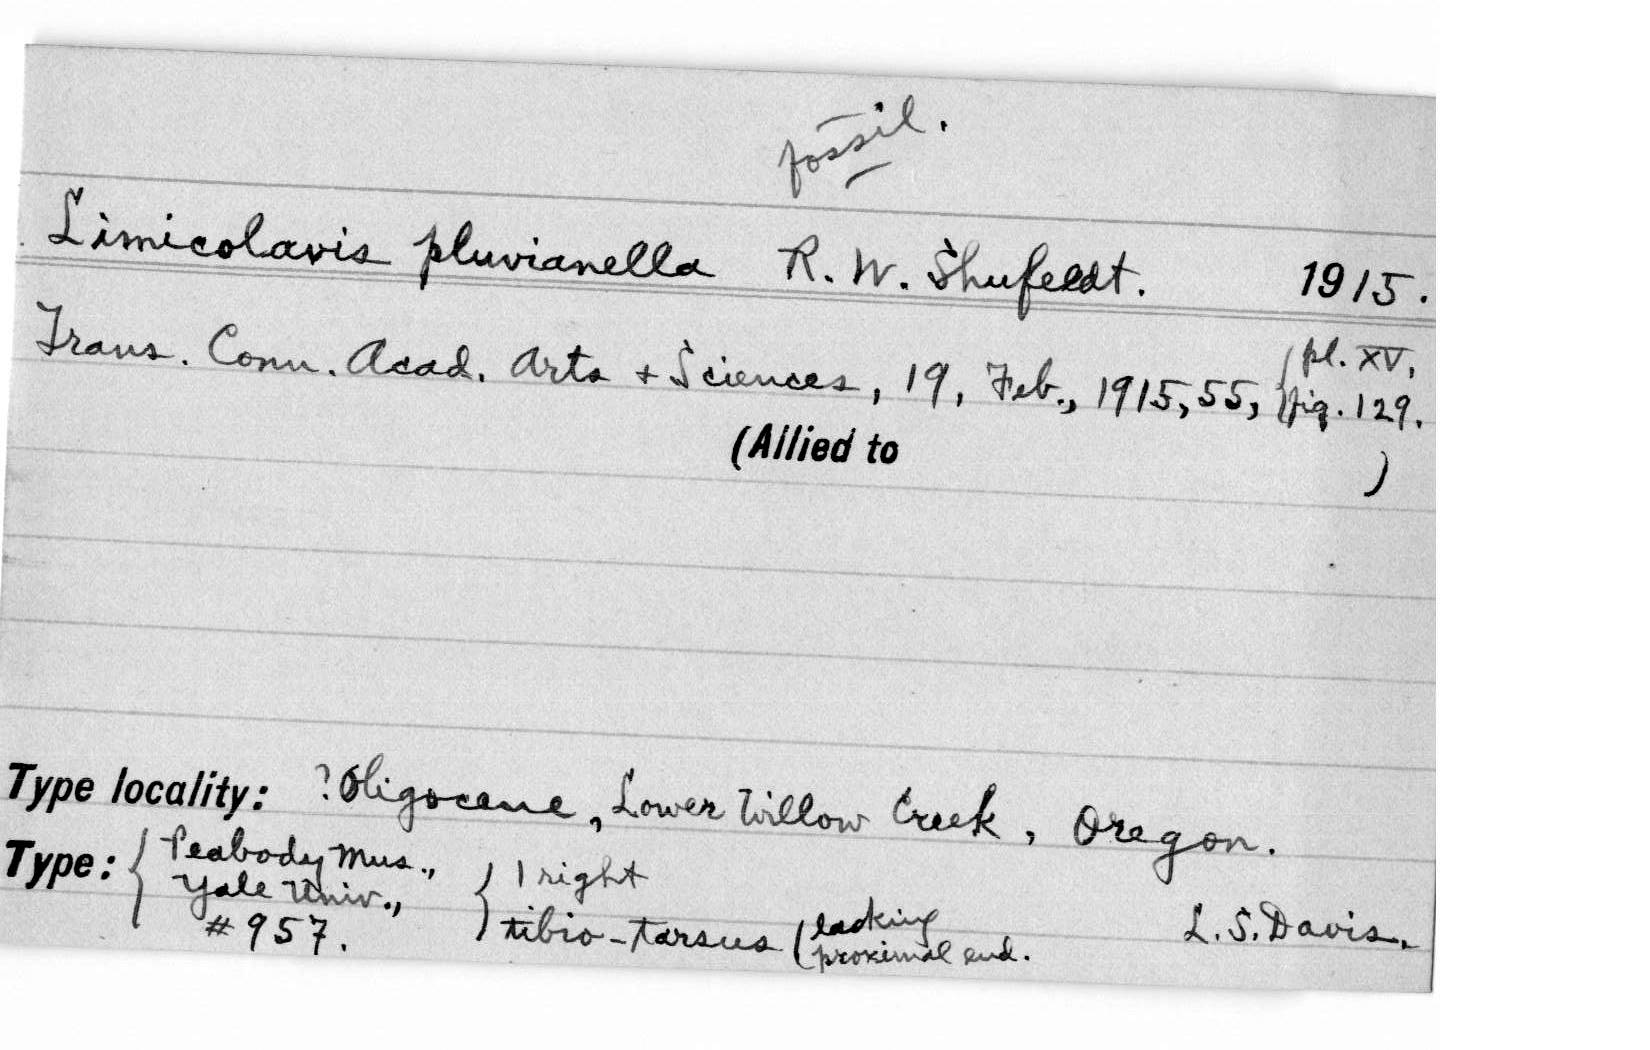 fossil.
Limicolavis pluvianella R. W. Shufeldt. 1915.
Trans. Conn. Acad. Arts + Sciences, 19, Feb., 1915, 55, { pl. XV,
fig. 129.
(Allied to )
Type locality: ?Oligocene, Lower Willow Creek, Oregon.
Type: { Peabody Mus.,
Yale Univ.,
#957.
{ 1 right
tibio-tarsus (lacking
proximal end.
L. S. Davis.